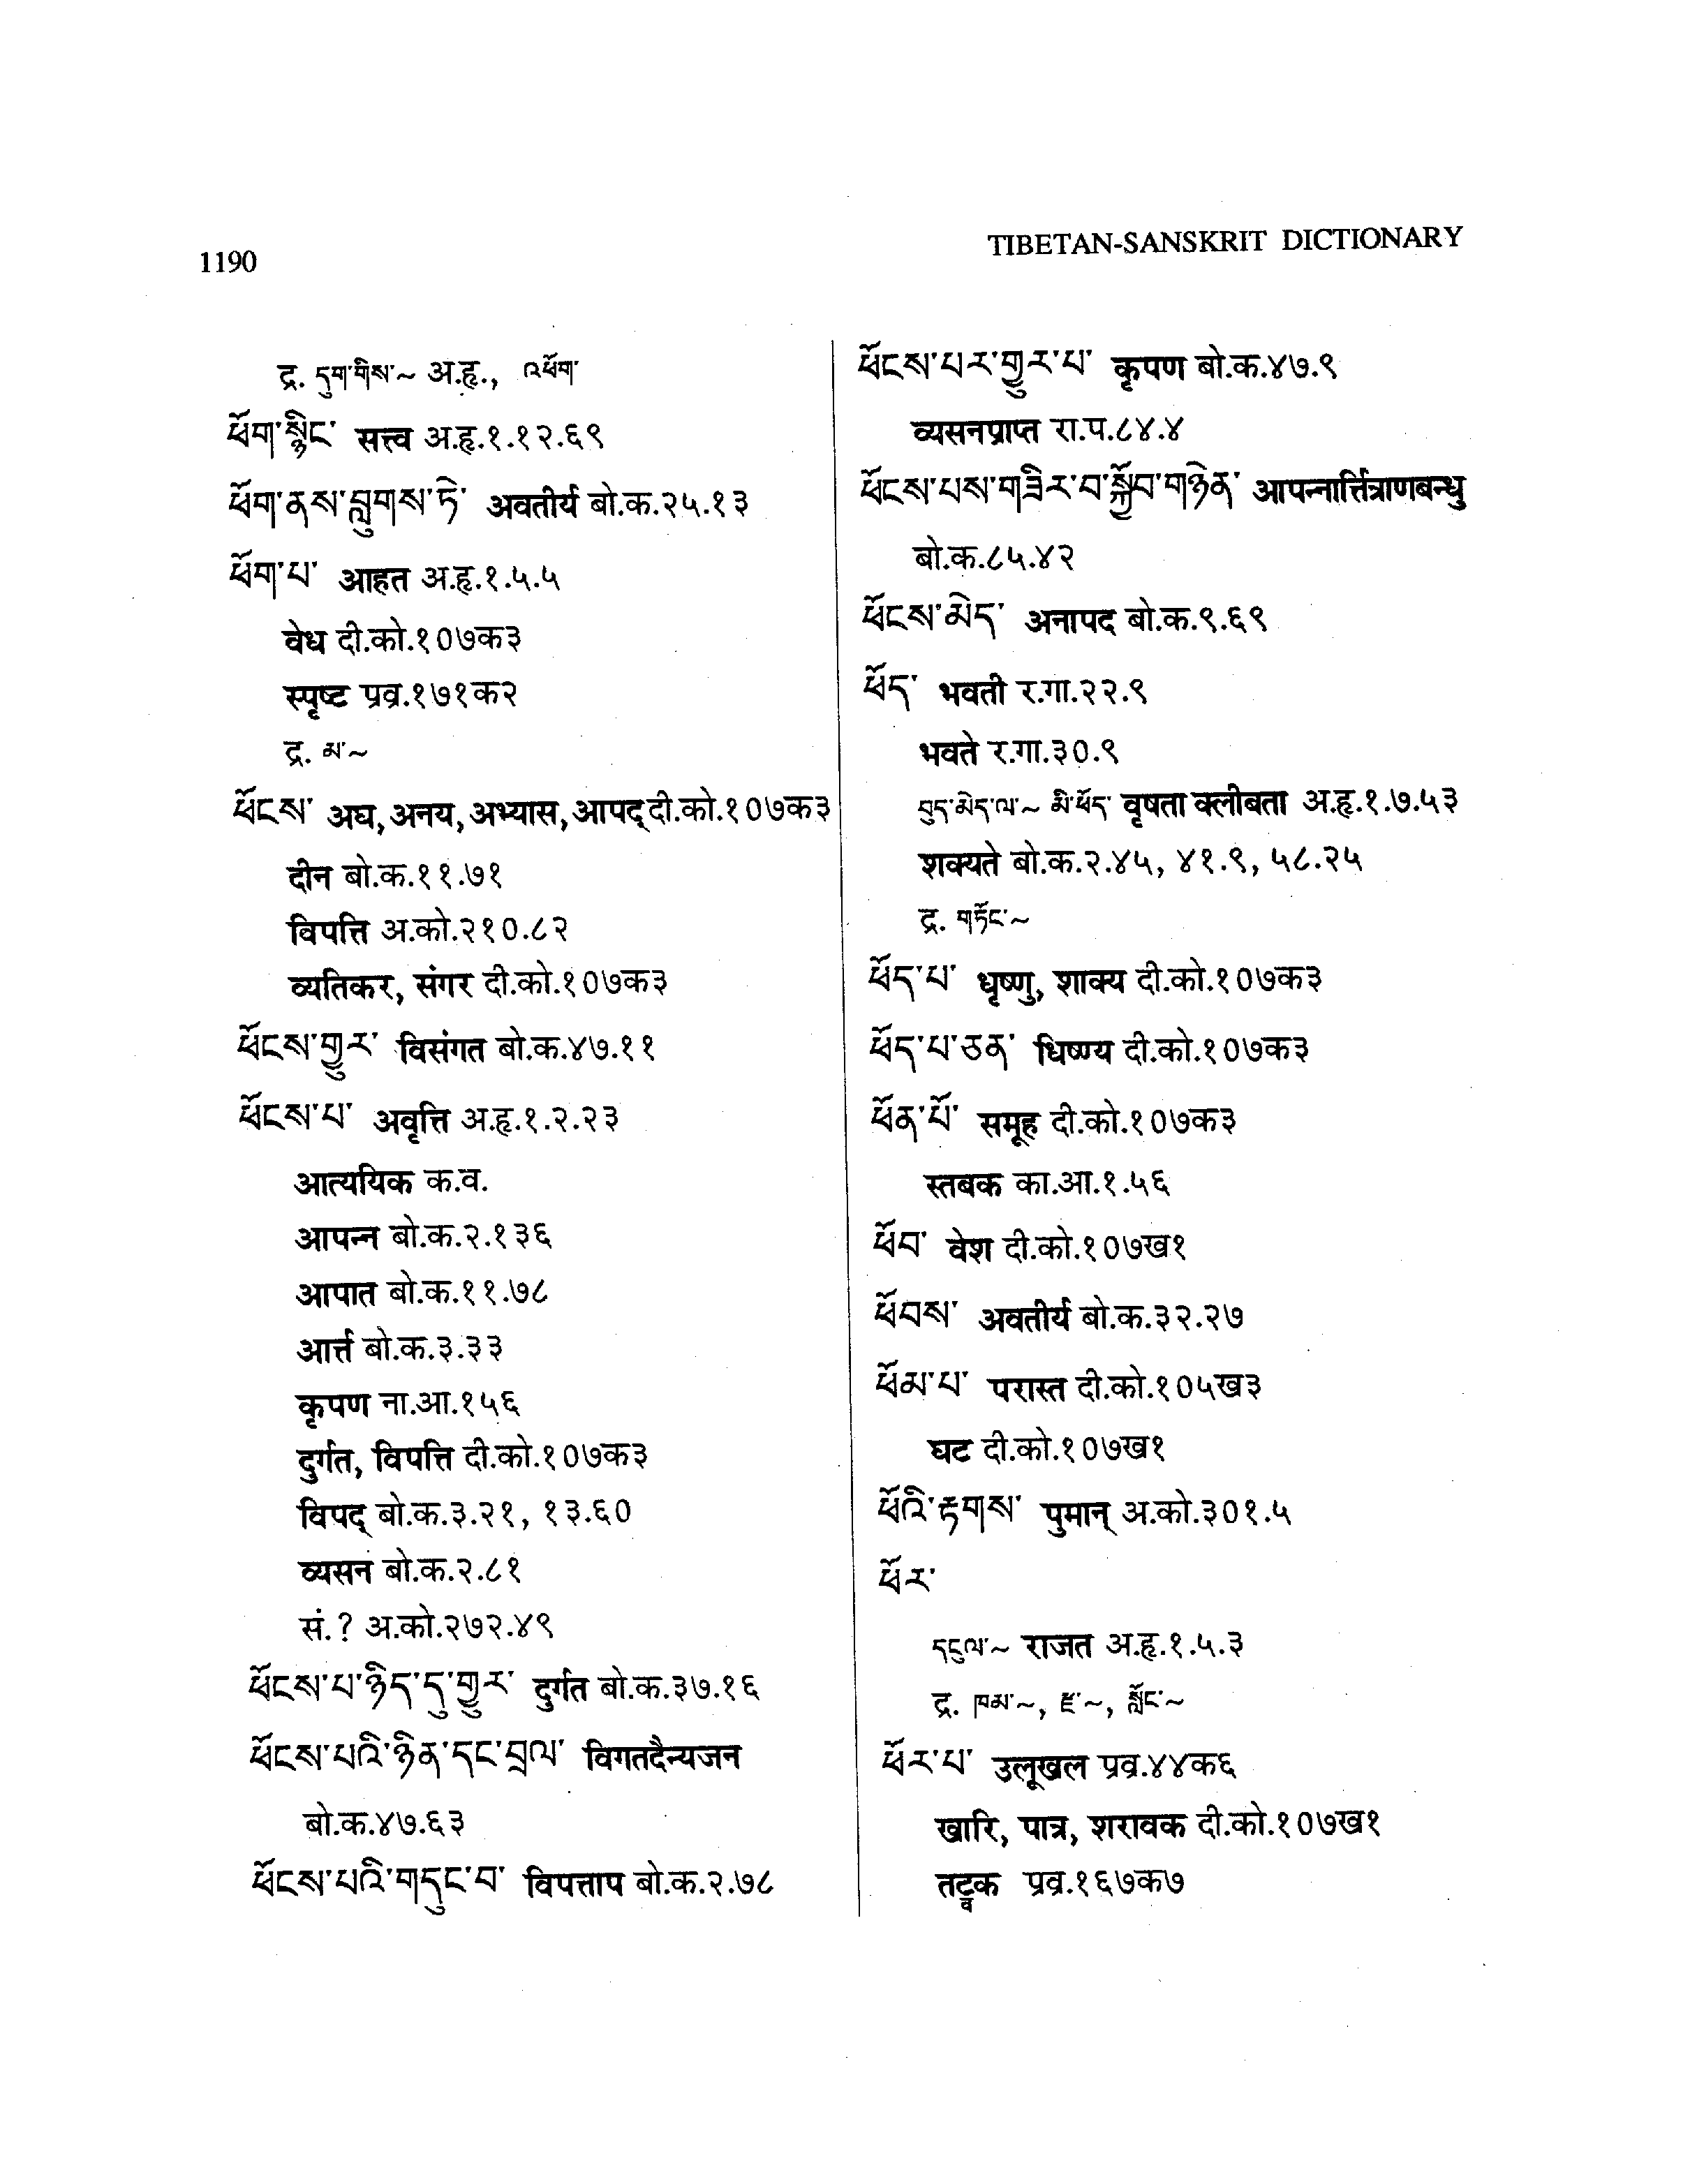 1190
TIBETAN-SANSKRIT DICTIONARY
द्र. དུག་གིས་~ अ.हृ., འཕོག་
ཕོག་སྙིང་ सत्त्व अ.हृ.१.१२.६९
ཕོག་ནས་བླུགས་ཏེ་ अवतीर्य बो.क.२५.१३
ཕོག་པ་ आहत अ.हृ.१.५.५
वेध दी.को.१०७क३
स्पृष्ट प्रव्र.१७१क२
द्र. མ་~
ཕོངས་ अघ, अनय, अभ्यास, आपद् दी.को.१०७क३
दीन बो.क.११.७१
विपत्ति अ.को.२१०.८२
व्यतिकर, संगर दी.को.१०७क३
ཕོངས་གྱུར་ विसंगत बो.क.४७.११
ཕོངས་པ་ अवृत्ति अ.हृ.१.२.२३
आत्ययिक क.व.
आपन्न बो.क.२.१३६
आपात बो.क.११.७८
आर्त्त बो.क.३.३३
कृपण ना.आ.१५६
दुर्गत, विपत्ति दी.को.१०७क३
विपद् बो.क.३.२१, १३.६०
व्यसन बो.क.२.८१
सं.? अ.को.२७२.४९
ཕོངས་པ་ཉིད་དུ་གྱུར་ दुर्गत बो.क.३७.१६
ཕོངས་པའི་ཉིན་དང་བྲལ་ विगतदैन्यजन
बो.क.४७.६३
ཕོངས་པའི་གདུང་བ་ विपत्ताप बो.क.२.७८
ཕོངས་པར་གྱུར་པ་ कृपण बो.क.४७.९
व्यसनप्राप्त रा.प.८४.४
ཕོངས་པས་གཟིར་བ་སྐྱོབ་གཉེན་ आपन्नार्त्तित्राणबन्धु
बो.क.८५.४२
ཕོངས་མེད་ अनापद बो.क.९.६९
ཕོད་ भवती र.गा.२२.९
भवते र.गा.३०.९
བུད་མེད་ལ་~ མི་ཕོད་ वृषता क्लीबता अ.हृ.१.७.५३
शक्यते बो.क.२.४५, ४१.९, ५८.२५
द्र. གཏོང་~
ཕོད་པ་ धृष्णु, शाक्य दी.को.१०७क३
ཕོད་པ་ཅན་ धिष्ण्य दी.को.१०७क३
ཕོན་པོ་ समूह दी.को.१०७क३
स्तबक का.आ.१.५६
ཕོབ་ वेश दी.को.१०७ख१
ཕོབས་ अवतीर्य बो.क.३२.२७
ཕོམ་པ་ परास्त दी.को.१०५ख३
घट दी.को.१०७ख१
ཕོའི་རྟགས་ पुमान् अ.को.३०१.५
ཕོར་
དངུལ་~ राजत अ.हृ.१.५.३
द्र. ཁམ་~, ཛ་~, སློང་~
ཕོར་པ་ उलूखल प्रव्र.४४क६
खारि, पात्र, शरावक दी.को.१०७ख१
तट्वक प्रव्र.१६७क७